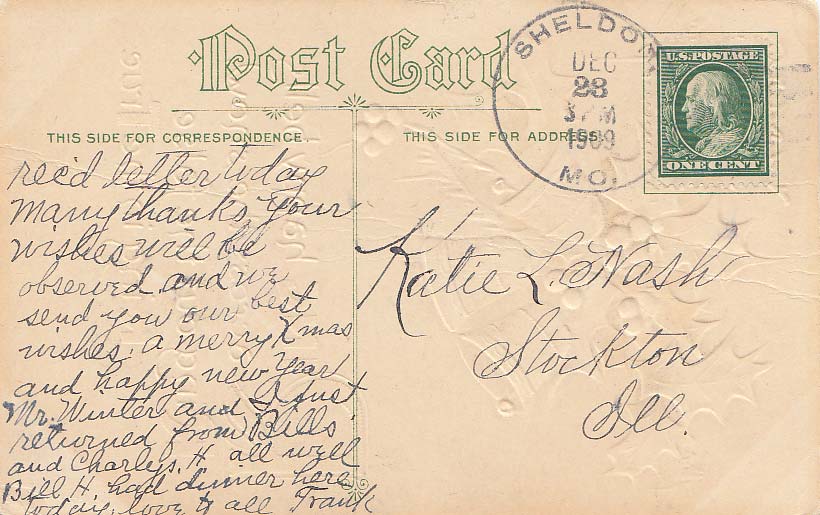 Post Card
SHELDON
DEC
23
PM
1909
MO.
U.S. POSTAGE
ONE CENT
THIS SIDE FOR CORRESPONDENCE
THIS SIDE FOR ADDRESS
rec'd letter today
many thanks, your
wishes will be
observed and we
send you our best
wishes. a merry Xmas
and happy new year
Mr. Winter and I just
returned from Bills
and Charleys. H. all well
Bill H. had dinner here
today. love to all Frank
Katie L. Nash
Stockton
Ill.